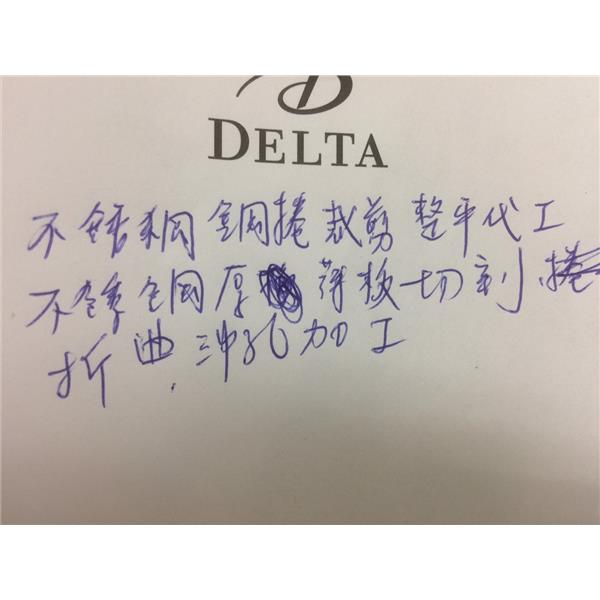 DELTA
不銹鋼 鋼捲 裁剪 整平代工
不銹鋼厚薄板切割
折曲.沖孔加工